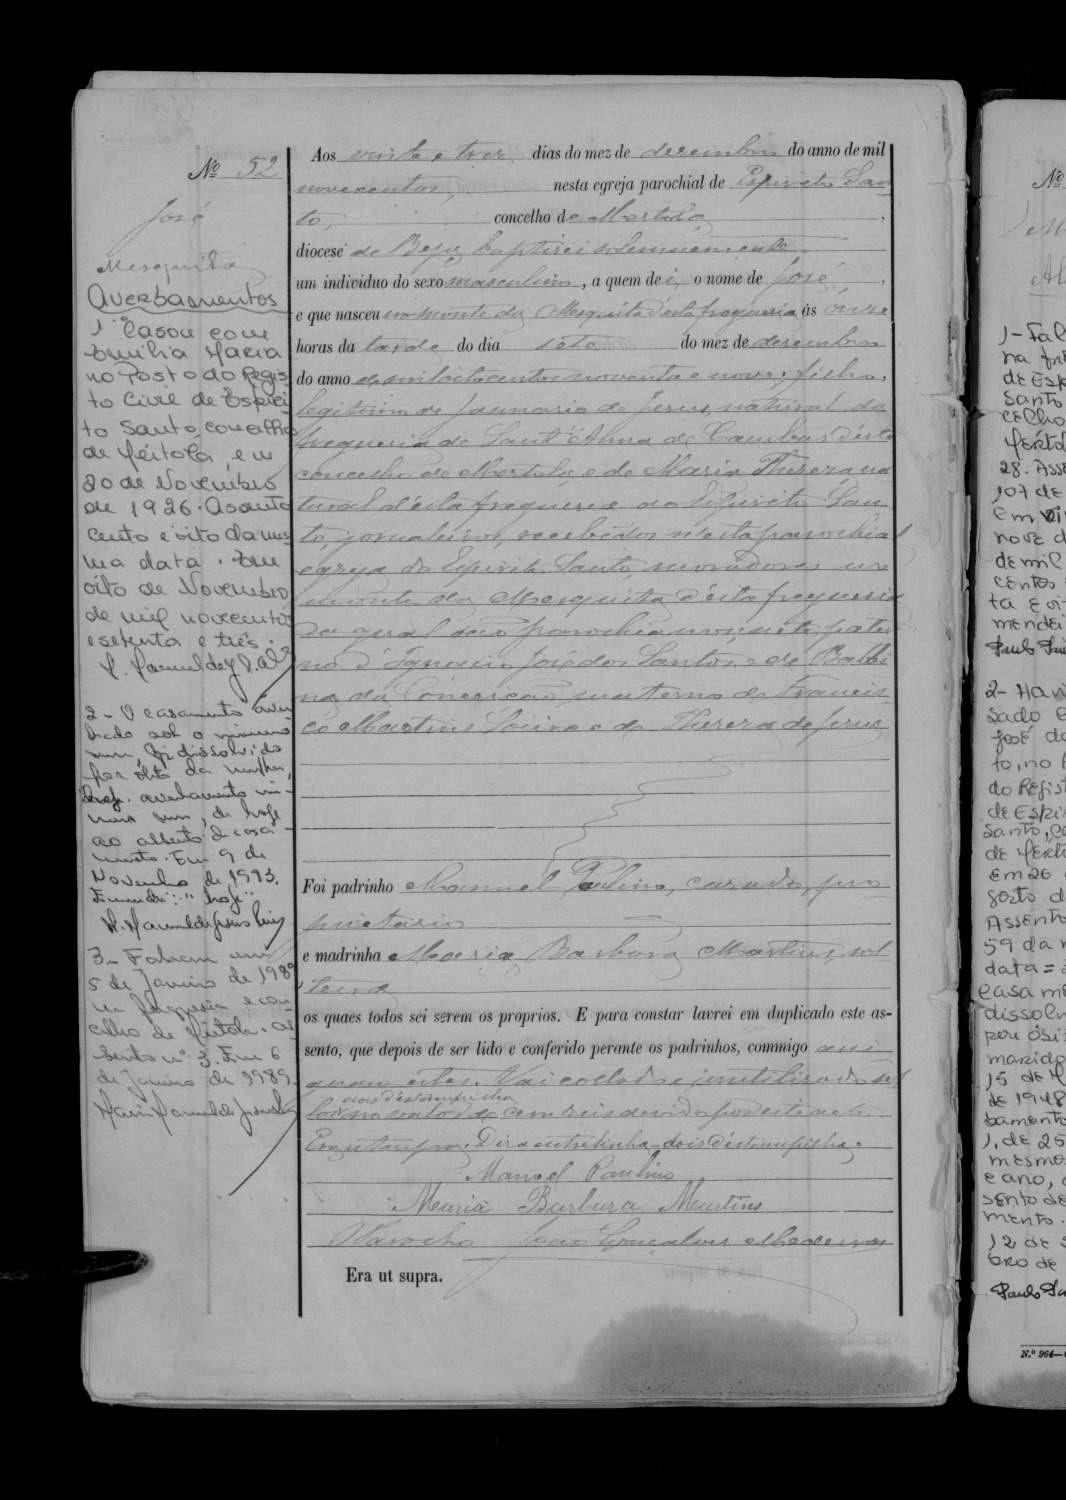 Nº 52
José
Mesquita
Averbamentos
1º Casou com
Emilia Maria
no Posto do Regis
to Civil de Espiri
to Santo, concelho
de Mértola, em
20 de Novembro
de 1926. Assento
cento e oito da mes
ma data. Em
oito de Novembro
de mil novecentos
e setenta e três.
2 - O casamento aver
bado sob o número
um, foi dissolvido
por óbito da mulher,
averbamento nú-
mero um, de hoje
ao assento de casa-
mento. Em 9 de
Novembro de 1973.
"hoje"
3 - Faleceu em
5 de Janeiro de 1989
na freguesia e con-
celho de Mértola. As
sento nº 3. Em 6
de Janeiro de 1989.
Aos vinte e tres dias do mez de dezembro do anno de mil
novecentos, nesta egreja parochial de Espirito San
to, concelho de Mertola,
diocese de Beja, baptisei solemnemente
um individuo do sexo masculino, a quem dei o nome de José,
e que nasceu no monte da Mesquita d'esta freguesia ás onze
horas da tarde do dia sete do mez de dezembro
do anno de mil oitocentos noventa e nove, filho
legitimo de Januario de Jesus, natural da
freguesia de Sant'Anna de Cambas d'este
concelho de Mertola, e de Maria Thereza na
tural d'esta freguesia do Espirito San
to, jornaleiros, recebidos n'esta parochial
egreja do Espirito Santo, moradores no
monte da Mesquita d'esta freguesia
da qual são parochianos, neto pater
no d'Ignacio José dos Santos, e de Balbi
na da Conceição, materno de Francis
co Martins Loiro e de Thereza de Jesus
Foi padrinho Manuel Paulino, casado, pro
prietario
e madrinha Maria Barbara Martins, sol
teira
os quaes todos sei serem os proprios. E para constar lavrei em duplicado este as-
sento, que depois de ser lido e conferido perante os padrinhos, commigo assi
gnam estes. Vai collado e inutilisado sel
dois d'estampilha
lo no valor de cem reis devido por este acto.
Era ut supra. Diz a entrelinha - dois d'estampilha.
Manoel Paulino
Maria Barbara Martins
O Parocho João Gonçalves Medeiros
Era ut supra.
Nº
1 - Fal
na fre
de Esp
Santo
celho
Mérto
28. Asse
107 de
em vi
nove d
de mil
centos
ta e oit
2 - Havi
sado c
José do
to, no P
do Regist
de Espi
Santo, co
de Mérto
em 26
gosto d
Assento
59 da m
data =
casame
dissolv
por óbi
marido
15 de
de 1948
bamento
1, de 25
mesmo
e ano, a
sento de
mento.
12 de
bro de
N.º 964